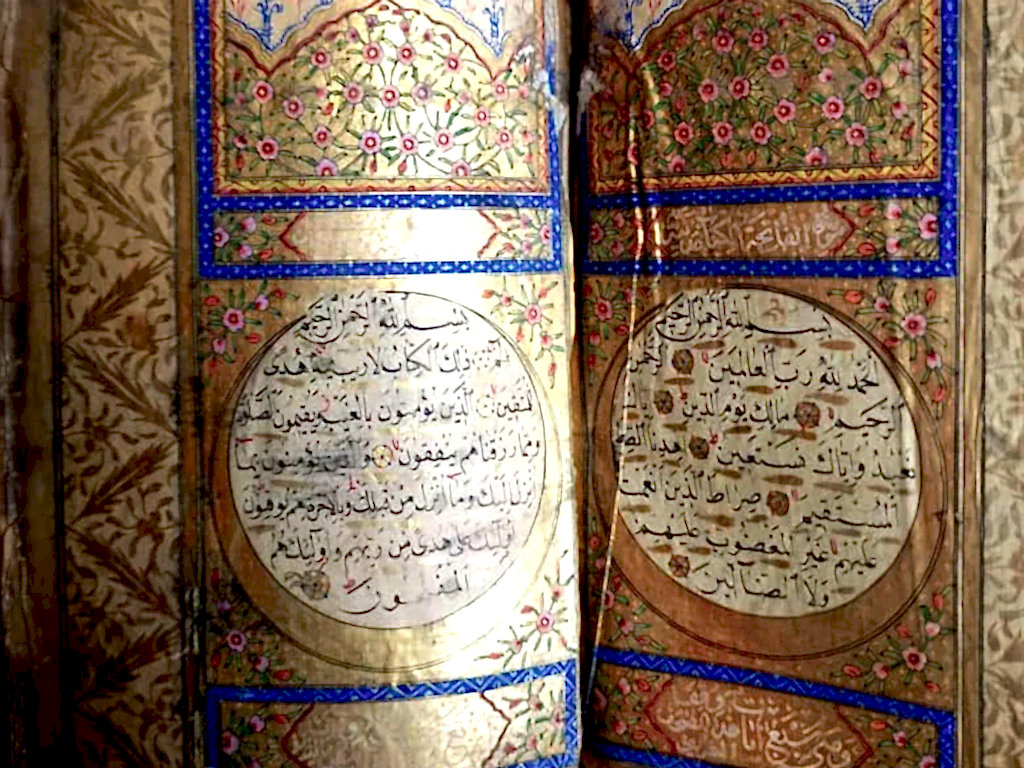 فاتحة الكتاب
بسم الله الرحمن الرحيم
الحمد لله رب العالمين الرحمن
الرحيم مالك يوم الدين اياك
نعبد واياك نستعين اهدنا الصراط
المستقيم صراط الذين انعمت
عليهم غير المغضوب عليهم
ولا الضالين
بسم الله الرحمن الرحيم
الم ذلك الكتاب لا ريب فيه هدى
للمتقين الذين يؤمنون بالغيب ويقيمون الصلوة
ومما رزقناهم ينفقون والذين يؤمنون بما
انزل اليك وما انزل من قبلك وبالاخرة هم يوقنون
اولئك على هدى من ربهم واولئك هم
المفلحون